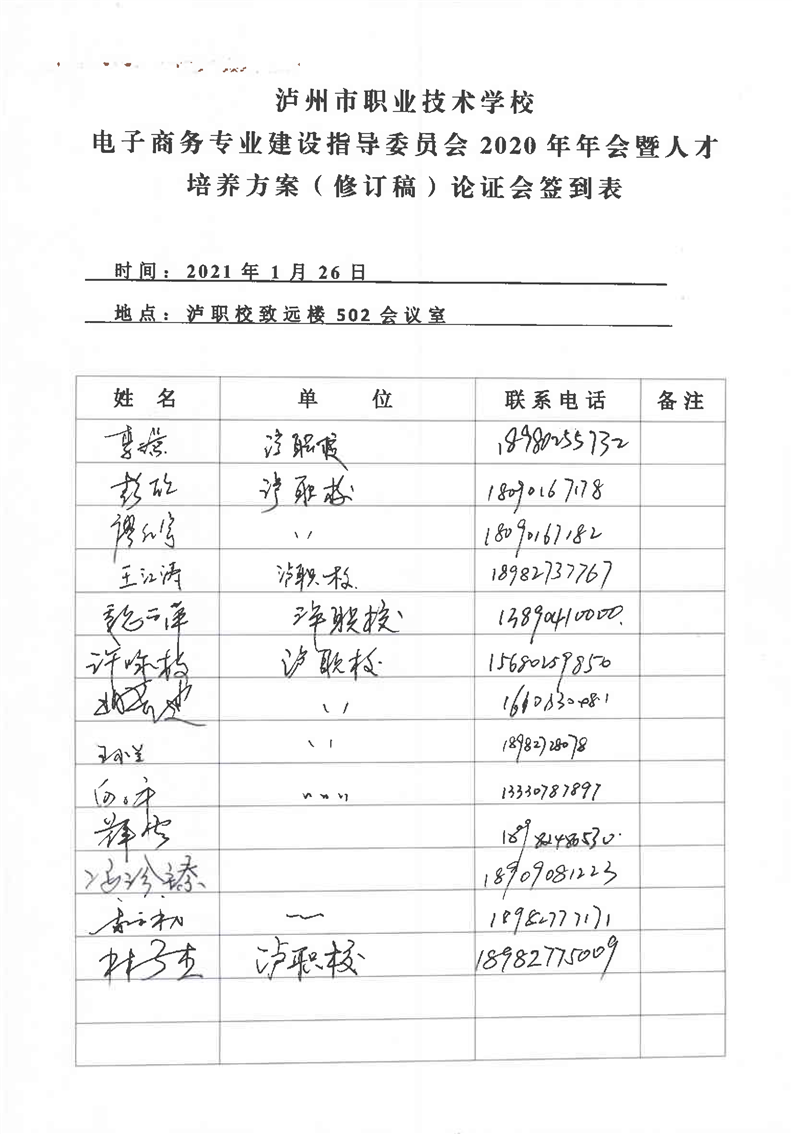 泸州市职业技术学校
电子商务专业建设指导委员会 2020 年年会暨人才
培养方案（修订稿）论证会签到表
时间：2021 年 1 月 26 日
地点：泸职校致远楼 502 会议室
姓 名 单 位 联系电话 备注
泸职校 18980255732
彭 泸职校 18090167178
廖 〃 18090167182
王江涛 泸职校 18982737767
泸职校 13890410000
许 枝 泸职校 15680259850
〃
〃 18982728078
〃 13330787897
18982486530
冯 18909081223
18982777171
林 杰 泸职校 18982775009